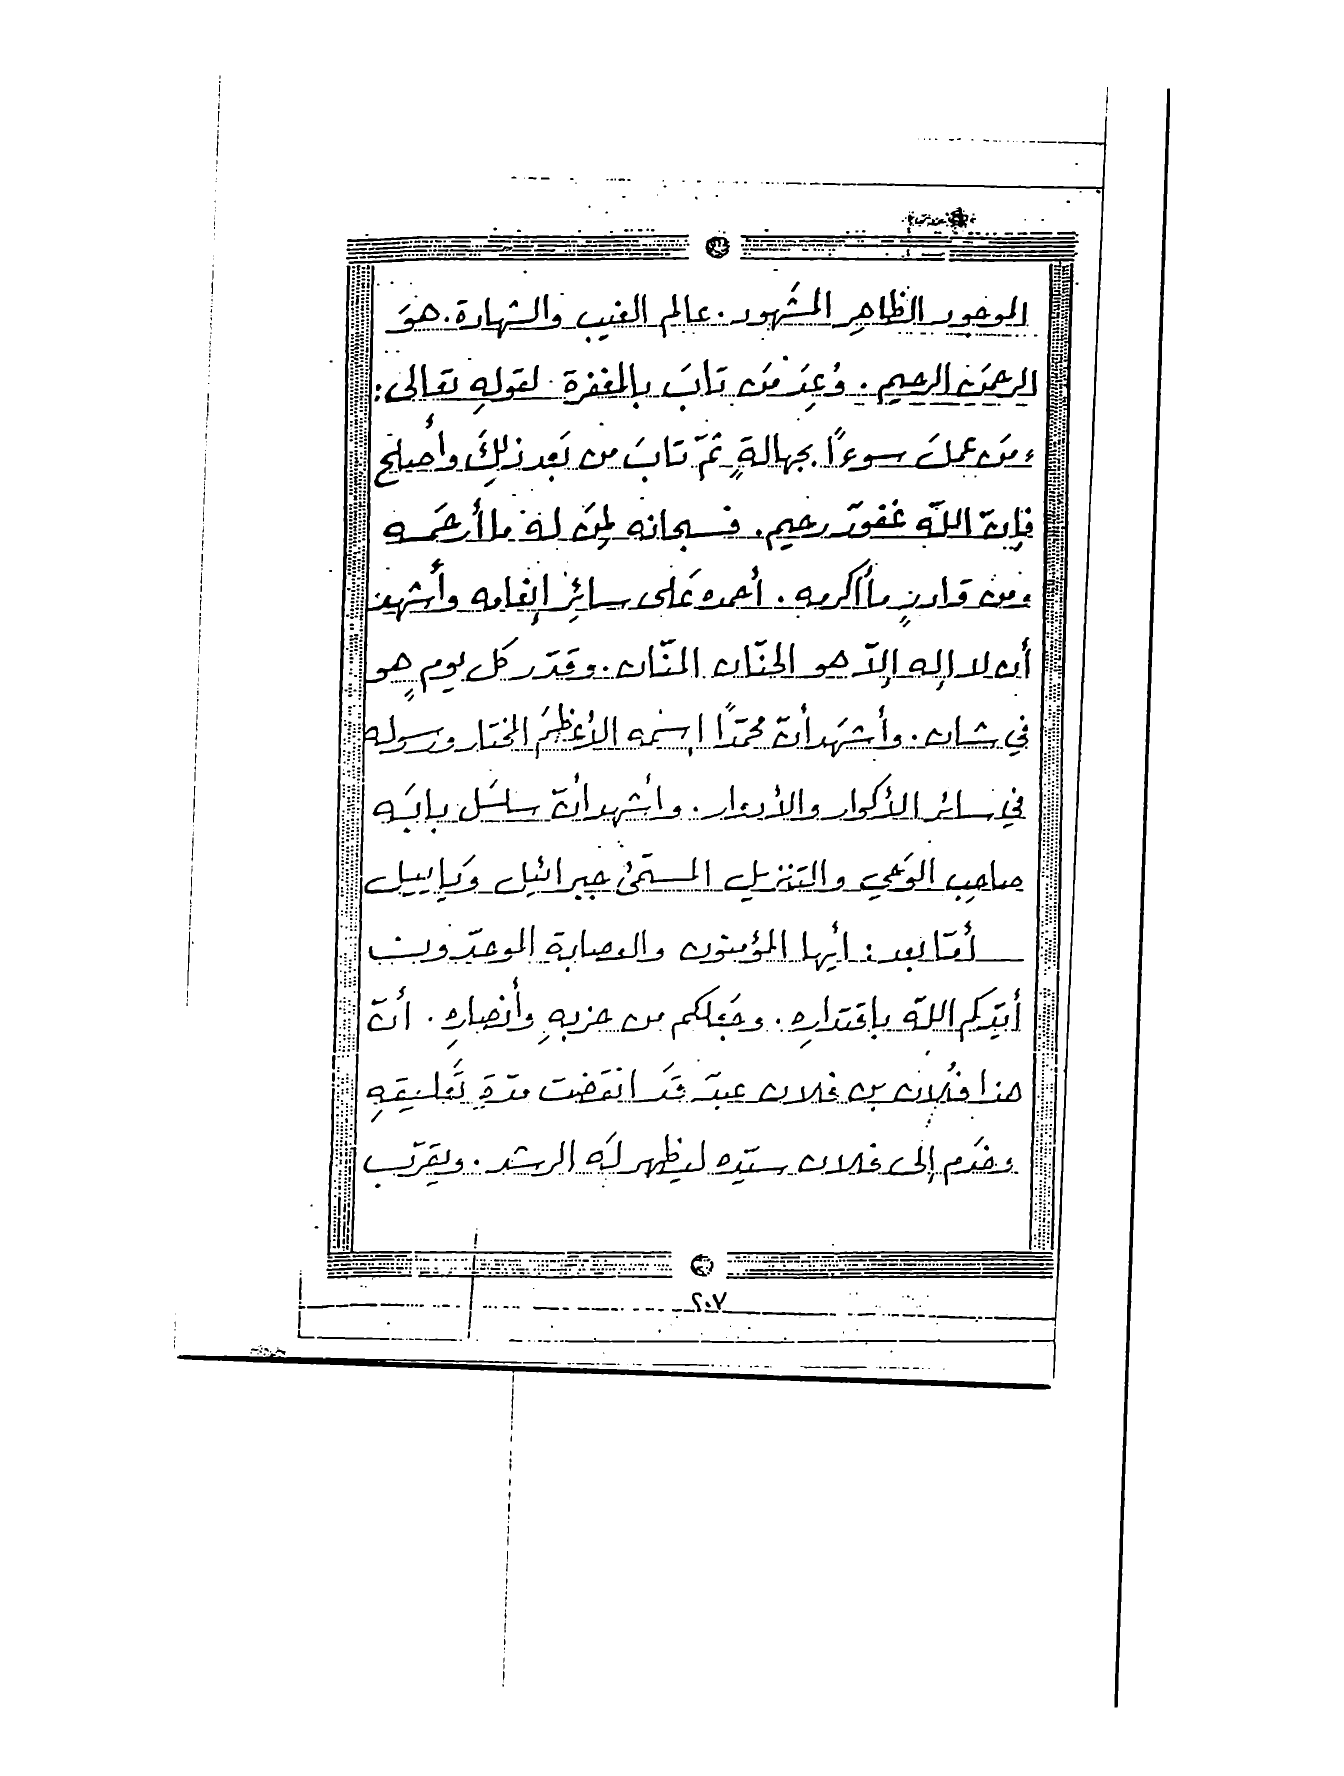 الموجود الظاهِر المشَهود. عالم الغيب والشهادة. هوَ
الرحمَن الرحيم. وُعِدَ مَن تابَ بالمغفرة. لقولهِ تعالى:
ومَن عملَ سوءًا بجهالةٍ ثمّ تابَ من بَعد ذلِكَ وأَصلح
فإنّ اللّه غفورٌ رحيم. فسبحانه لمن لهُ ما أرحَمه
ومن قادرٍ ما أكرمه. أحمده عَلى سائرِ إنعامه وأَشهد
أن لا إله إلاّ هو الحنّان المنّان. وقدّر كل يومٍ هو
في شان. وأَشهَد أنّ محمّدًا إسمه الأعظمَ المختار ورسوله
في سائر الأكوار والأدوار. وأشهد أنّ سلسَل بابَه
صاحِب الوَحي والتنزيل المسمّى جبرائيل وياييل
أمّا بعد: أيها المؤمنون والعصابة الموحّدون
أيّدكم اللّه باقتدارهِ. وجَعلكم من حزبهِ وأَنصارهِ. أنّ
هذا فلان بن فلان عبدٌ قد انقَضت مدّة تَعليقهِ
وخدَم إلى فلان سيّده ليظهر لَه الرشد. ويقرّب
٢٠٧